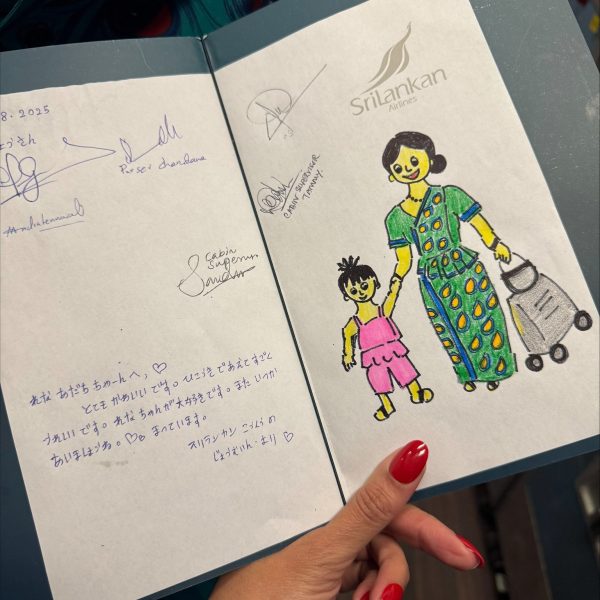 8.2025
Purser Chandana
Cabin
れな あだち ちゃーんへ, ♡
とても かわいい です。ひこうきで あえて すごく
うれしい です。れな ちゃんが 大好き です。また いつか
あいましょうね。♡ まっています。
スリランカン こうくう の
じょうむいん・より ♡
SriLankan
Airlines
CABIN SUPERVISOR